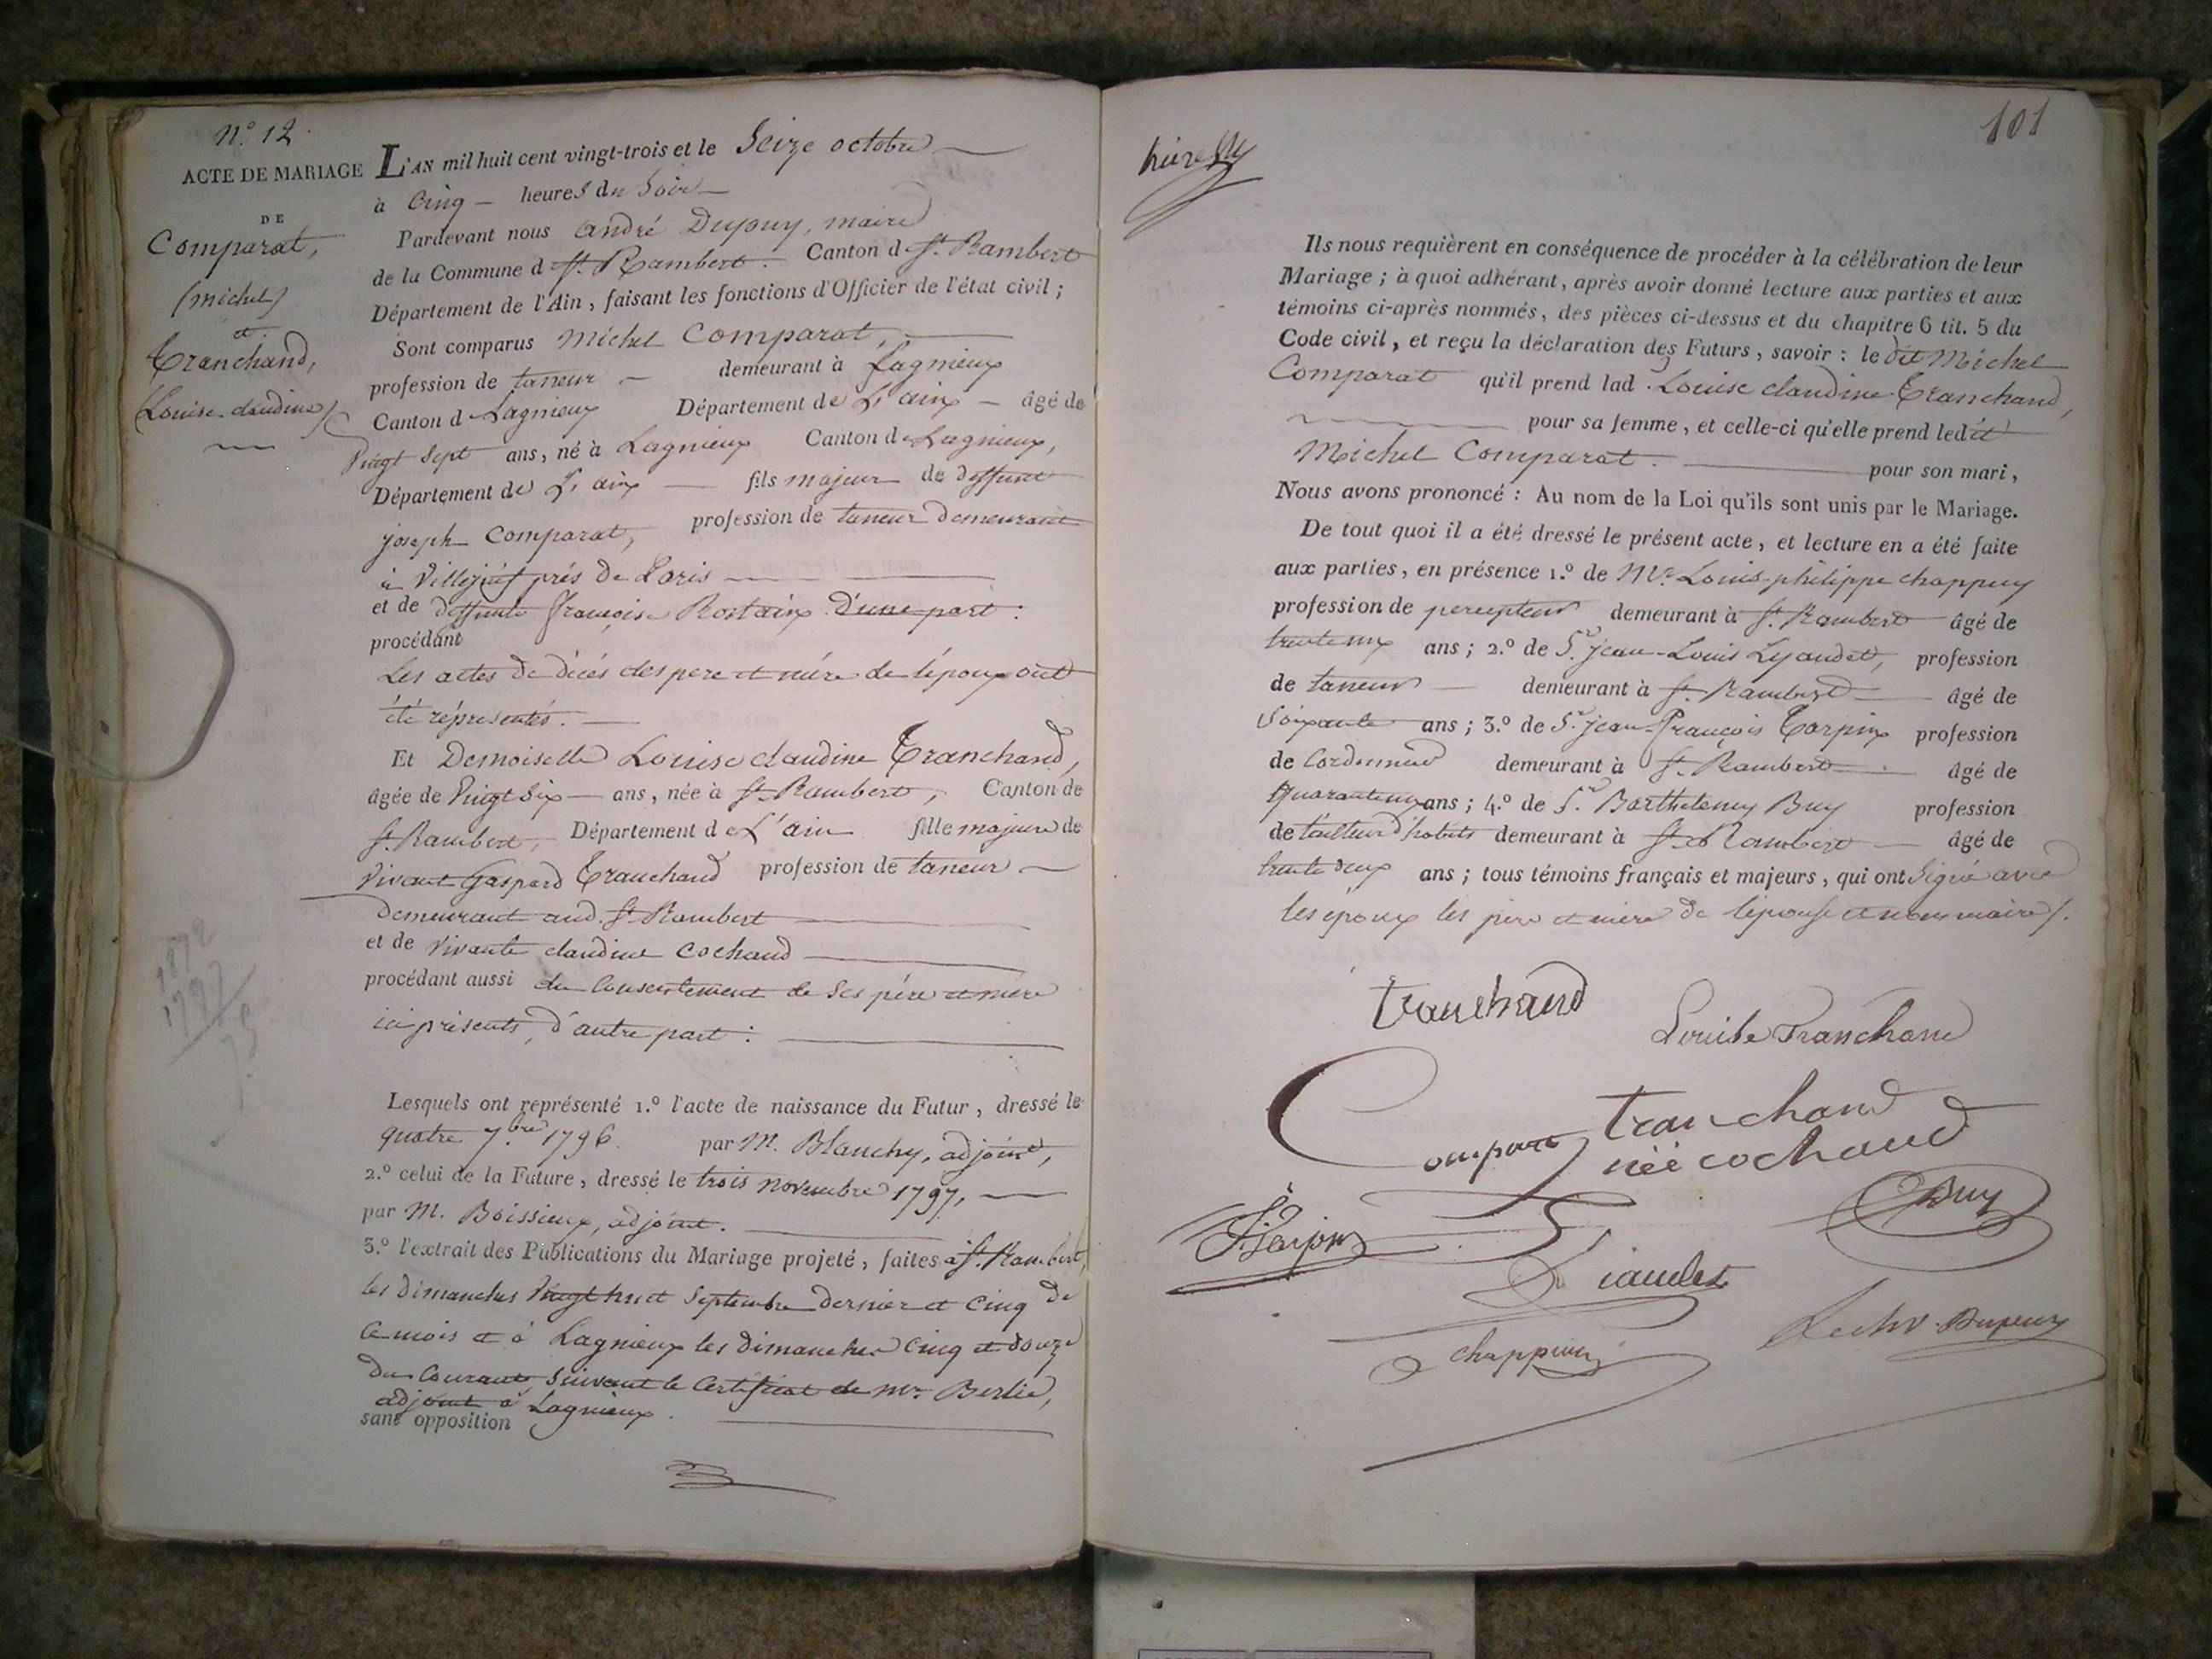 N.° 12.
ACTE DE MARIAGE
DE
Comparat,
(michel)
et
Tranchand,
(Louise claudine)
L'AN mil huit cent vingt-trois et le Seize octobre
à Cinq heures du Soir
Pardevant nous andré Dupuy, maire
de la Commune d St. Rambert. Canton d St. Rambert
Département de l'Ain, faisant les fonctions d'Officier de l'état civil;
Sont comparus Michel Comparat,
profession de taneur demeurant à Lagnieux
Canton d Lagnieux Département de L'ain âgé de
Vingt Sept ans, né à Lagnieux Canton de Lagnieux,
Département de L'ain fils majeur de deffunt
joseph Comparat, profession de taneur demeurant
à Villejuif prés de Paris
et de deffunte françoise Rostaing d'une part:
procédant
Les actes de décés des pere et mére de l'époux ont
été réprésentés.
Et Demoiselle Louise claudine Tranchand,
âgée de Vingt Six ans, née à St. Rambert, Canton de
St. Rambert, Département de L'ain fille majeure de
Vivant Gaspard Tranchand profession de taneur
demeurant aud. St. Rambert
et de Vivante claudine Cochaud
procédant aussi du Consentement de Ses pére et mére
ici présents, d'autre part:
1872
1797
75
Lesquels ont représenté 1.° l'acte de naissance du Futur, dressé le
quatre 7.bre 1796. par M. Blanchy, adjoint,
2.° celui de la Future, dressé le trois novembre 1797,
par M. Boissieux, adjoint.
3.° l'extrait des Publications du Mariage projeté, faites à St. Rambert,
les dimanches Vingt huit Septembre dernier et Cinq de
Ce mois et à Lagnieux les dimanches Cinq et douze
du Courant Suivant le Certificat de Mr. Berlie,
adjoint à Lagnieux.
sans opposition
101
Ils nous requièrent en conséquence de procéder à la célébration de leur
Mariage; à quoi adhérant, après avoir donné lecture aux parties et aux
témoins ci-après nommés, des pièces ci-dessus et du chapitre 6 tit. 5 du
Code civil, et reçu la déclaration des Futurs, savoir: le dit Michel
Comparat qu'il prend lad. Louise claudine Tranchand,
pour sa femme, et celle-ci qu'elle prend ledit
Michel Comparat. pour son mari,
Nous avons prononcé: Au nom de la Loi qu'ils sont unis par le Mariage.
De tout quoi il a été dressé le présent acte, et lecture en a été faite
aux parties, en présence 1.° de Mr. Louis-philippe chappuy
profession de percepteur demeurant à St. Rambert âgé de
ans; 2.° de Sr. jean-Louis Lyaudet, profession
de taneur demeurant à St. Rambert âgé de
Soixante ans; 3.° de Sr. jean-françois Carpin profession
de Cordonnier demeurant à St. Rambert âgé de
ans; 4.° de Sr. Barthelemy Buy profession
de tailleur d'habits demeurant à St. Rambert âgé de
trente deux ans; tous témoins français et majeurs, qui ont Signé avec
les epoux les pére et mére de l'épouse et nous maire /.
tranchand
Louise Tranchand
Comparat
tranchand
née cochaud
Buy
Liaudet
chappuy
Dupuy